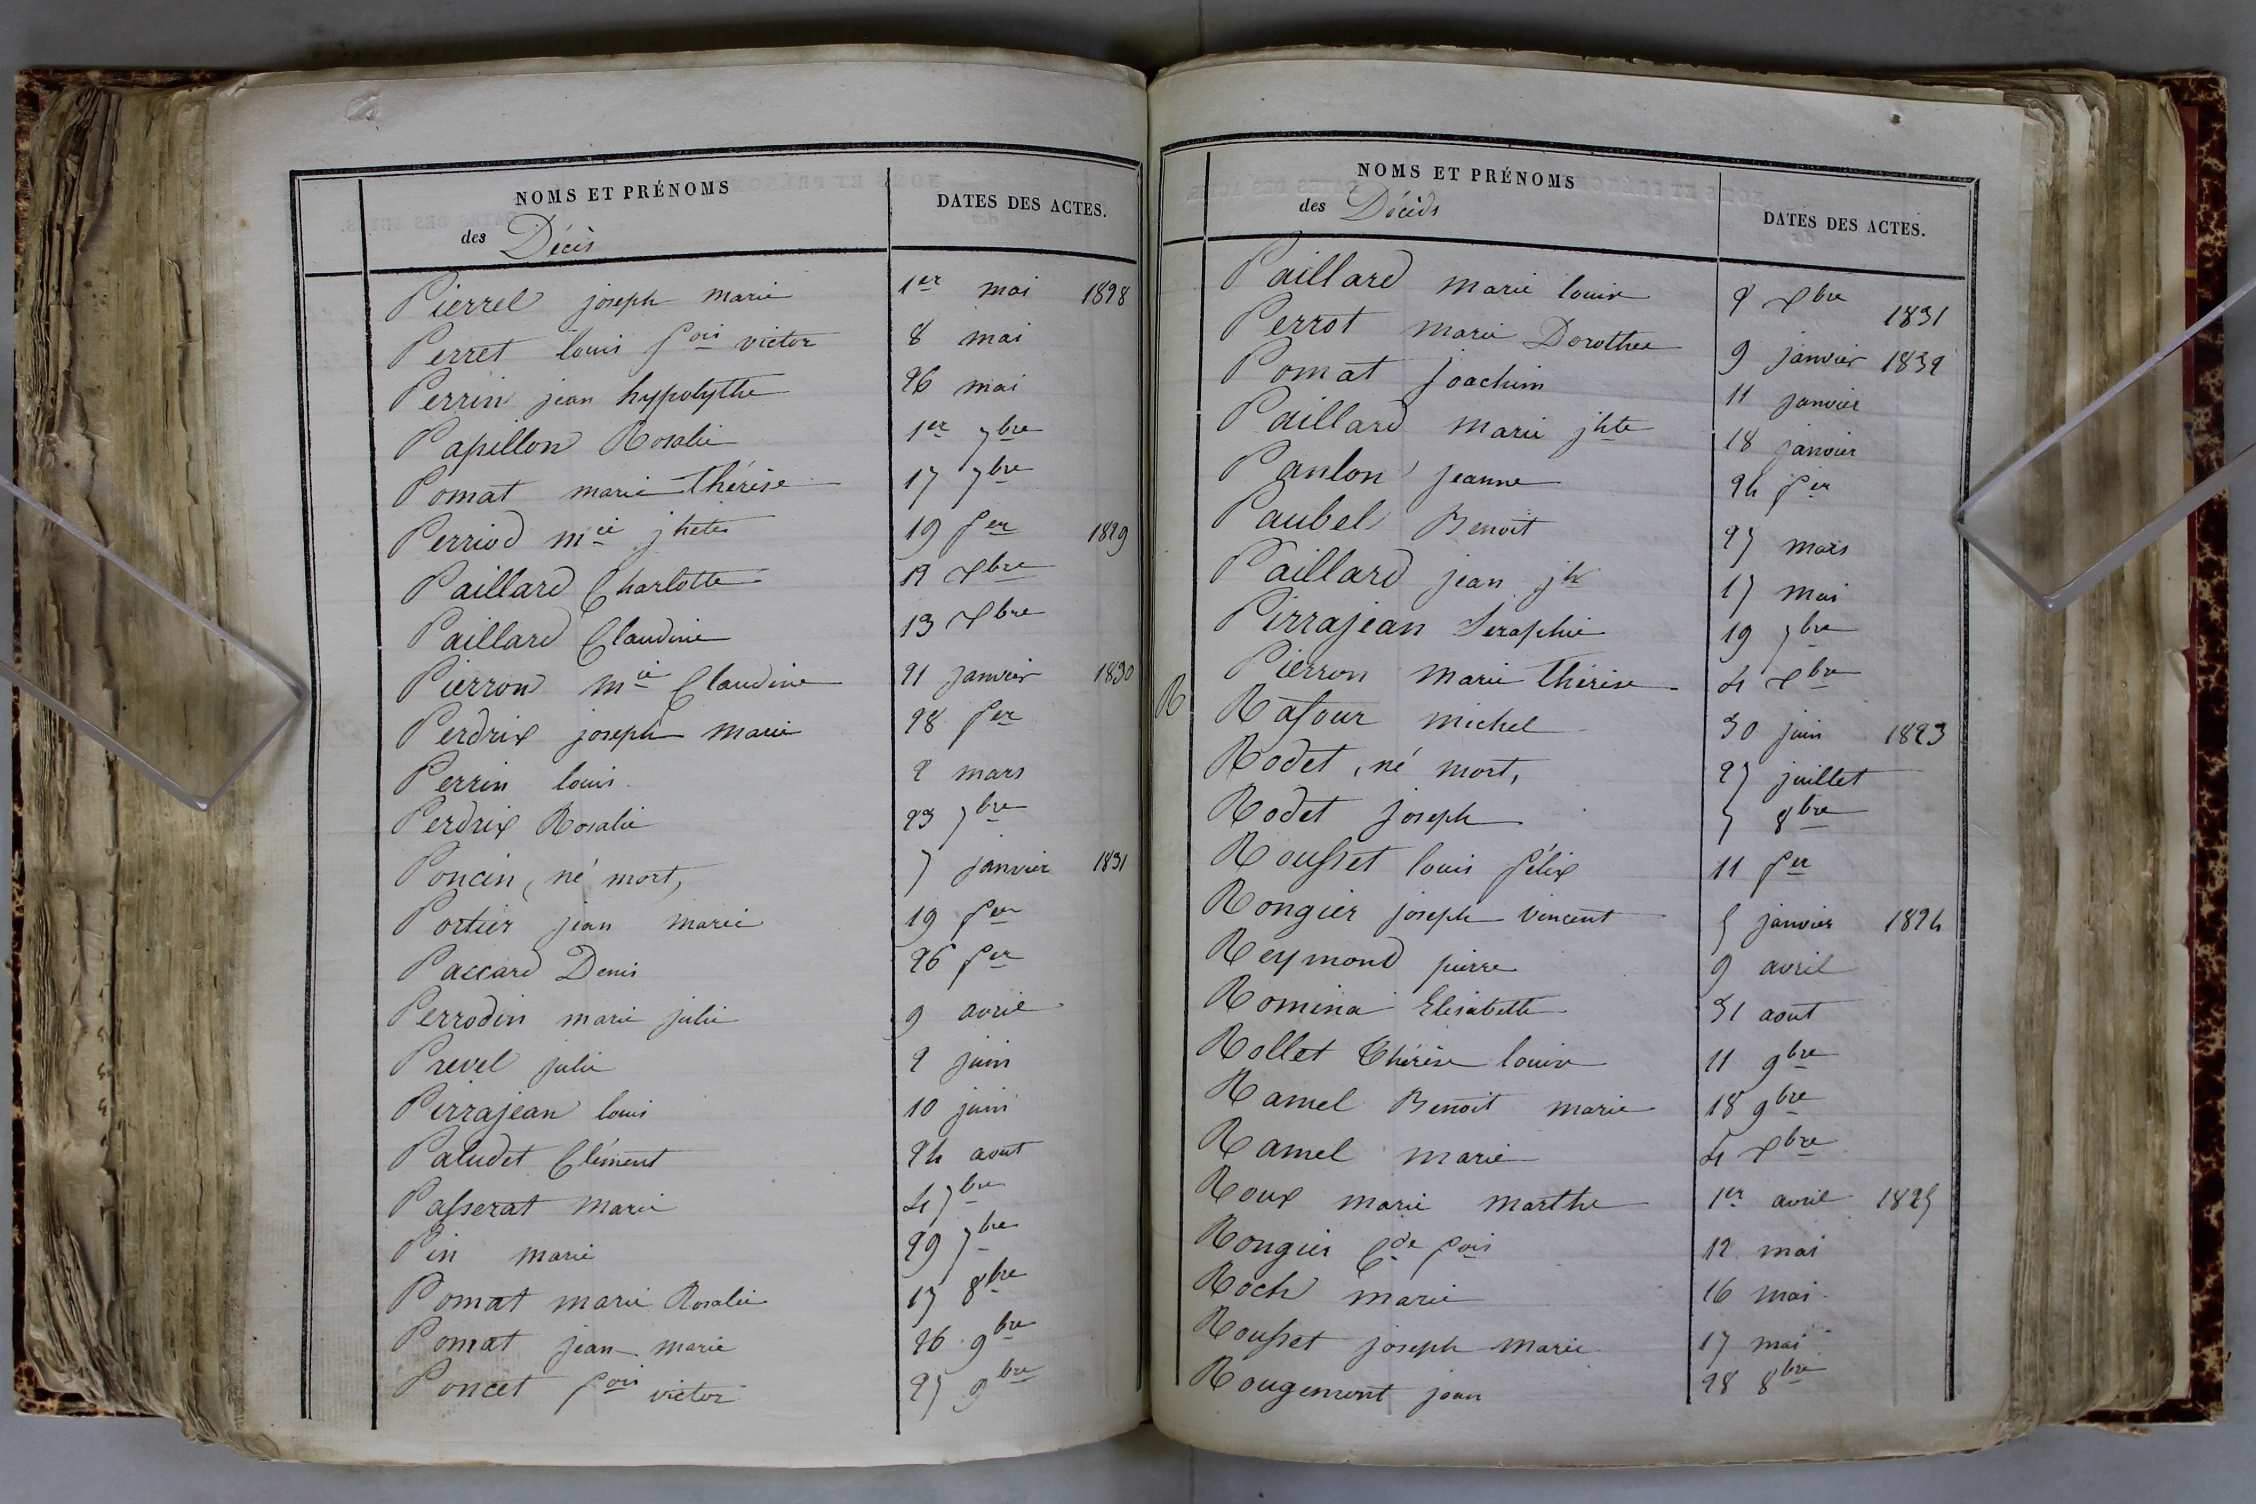 NOMS ET PRÉNOMS
des Décès
DATES DES ACTES.
Pierrel joseph marie 1er mai 1828
Perret louis fois victor 8 mai
Perrin jean hypolythe 26 mai
Papillon Rosalie 1er 7bre
Pomat marie thérèse 17 7bre
Perriod mie jhte 19 fer 1829
Paillard Charlotte 12 Xbre
Paillard Claudine 13 Xbre
Pierron mie Claudine 21 janvier 1830
Perdrix joseph marie 28 fer
Perrin louis 2 mars
Perdrix Rosalie 23 7bre
Poncin, né mort, 7 janvier 1831
Portier jean marie 19 fer
Paccard Denis 26 fer
Perrodin marie julie 9 avril
Prevel julie 2 juin
Pirrajean louis 10 juin
Paludet Clément 24 aout
Passerat marie 4 7bre
Pin marie 29 7bre
Pomat marie Rosalie 17 8bre
Pomat jean marie 26 9bre
Poncet fois victor 27 9bre
NOMS ET PRÉNOMS
des Décédés
DATES DES ACTES.
Paillard marie louise 8 Xbre 1831
Perrot marie Dorothee 9 janvier 1832
Pomat joachim 11 janvier
Paillard marie jhte 18 janvier
Panlon jeanne 24 fer
Paubel Benoit 27 mars
Paillard jean jh 17 mai
Pirrajean Seraphie 19 7bre
Pierron marie thérèse 4 Xbre
R Rafour michel 30 juin 1823
Rodet, né mort, 27 juillet
Rodet joseph 7 8bre
Rousset louis félix 11 fer
Rongier joseph vincent 5 janvier 1824
Reymond pierre 9 avril
Romina Elisabette 31 aout
Rollet Thérèse louise 11 9bre
Ramel Benoit marie 18 9bre
Ramel marie 4 Xbre
Roux marie marthe 1er avril 1825
Rongier Cde fois 12 mai
Roch marie 16 mai
Rousset joseph marie 17 mai
Rougemont jean 28 8bre